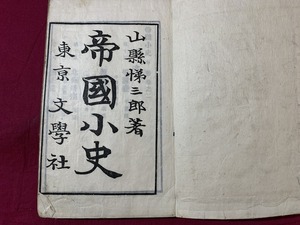 山縣悌三郎著
帝國小史
東京文學社